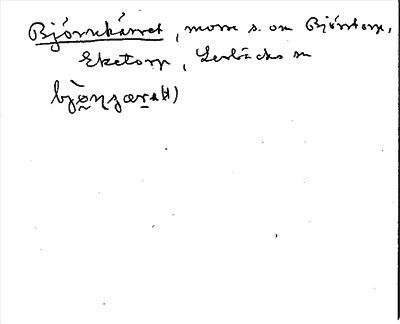 Björnkärret, mosse s. om Björntorp,
Eketorp, Lerbäcks sn